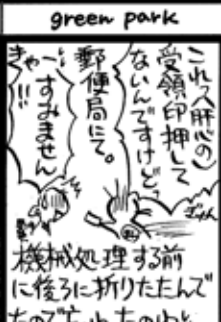 green park
これ、肝心の
受領印押して
ないんですけど。
郵便局にて。
きゃー、
すみません
!!!
機械処理する前
に後ろに折りたたんで